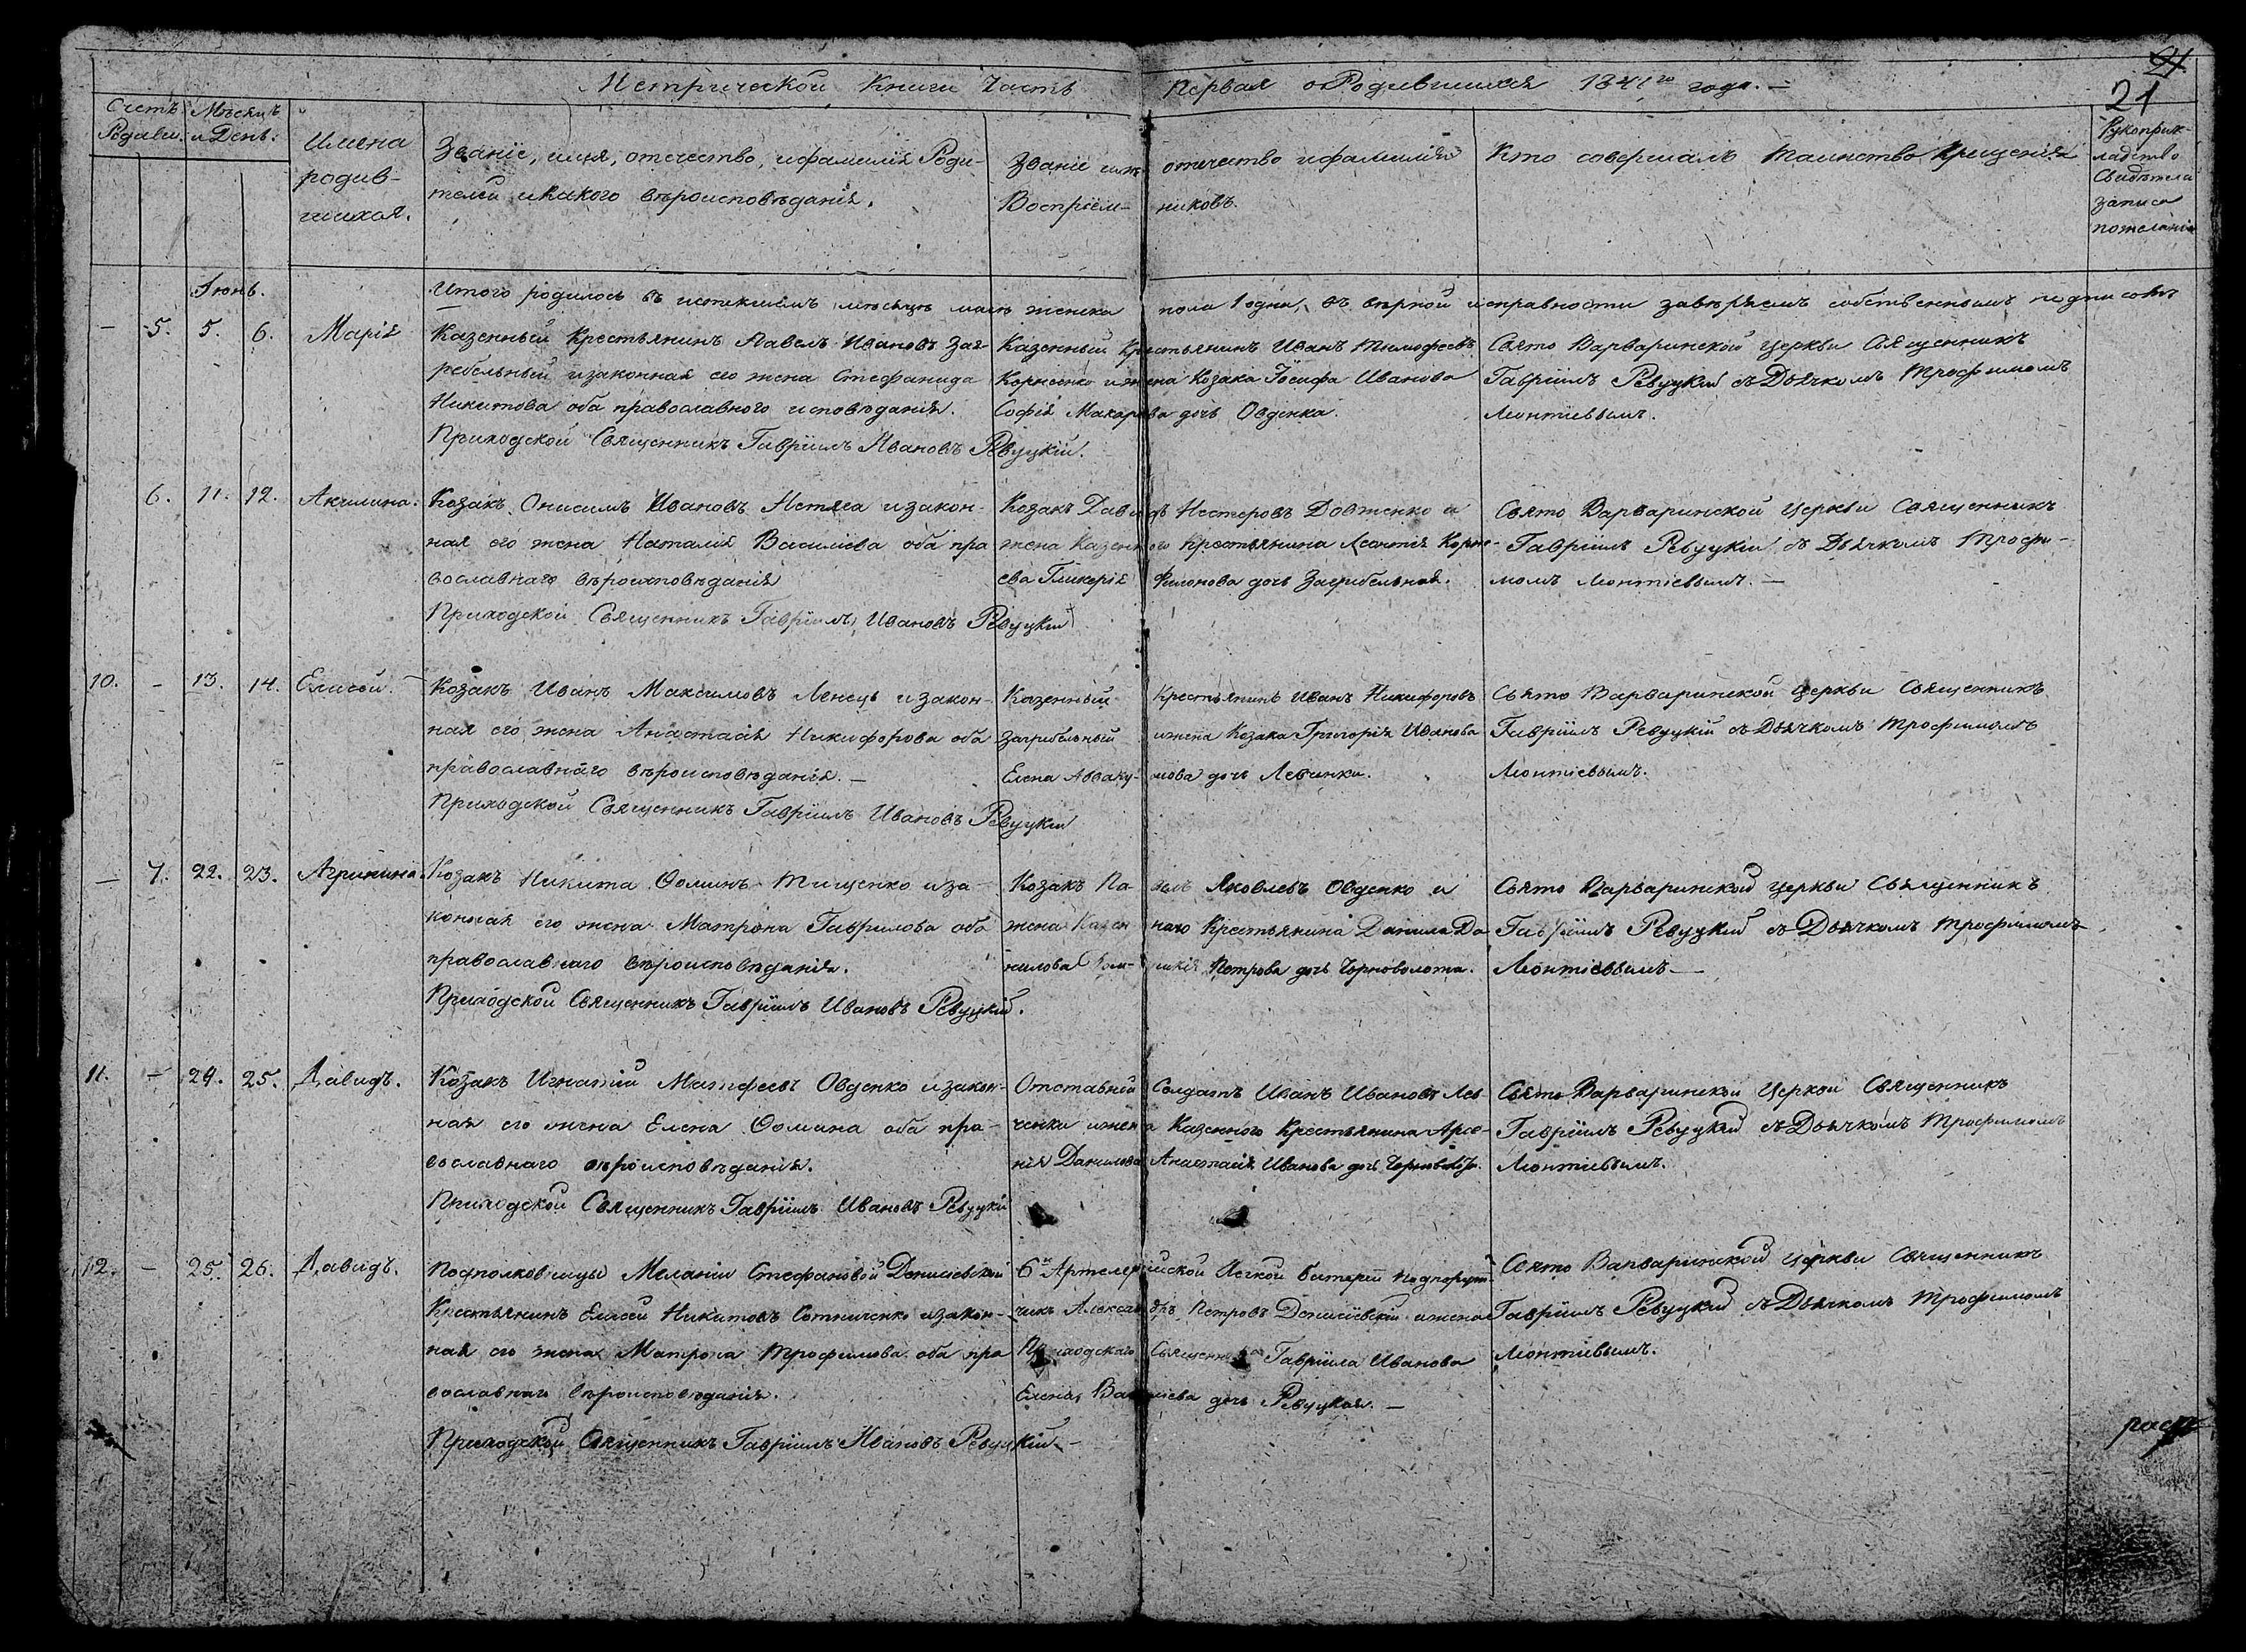 Метрической Книги Часть Первая о Родившихся 1841го года. —
21
21
Счетъ Родивш.
Мѣсяцъ и День.
Имена родив-
шихся.
Званіе, имя, отечество, и фамилія Роди-
телей и какого вѣроисповѣданія.
Званіе имя отечество и фамилія
Воспріем- никовъ.
Кто совершалъ таинство крещенія
Рукоприк-
ладство
Свидѣтел
записа
пожеланію
Іюнь.
Итого родилось въ истекшемъ мѣсяцѣ маѣ женска пола 1 одна, въ верной исправности завѣряемъ собственнымъ подписомъ
— 5. 5. 6. Марія
Казенный Крестьянинъ Павелъ Ивановъ Заг-
ребельный и законная его жена Стефанида
Никитова оба православного исповѣданія.
Приходской Священникъ Гавріилъ Ивановъ Ревуцкій.
Казенный Крестьянинъ Иванъ Тимофеевъ
Корнеенко и жена Козака Іосифа Иванова
Софія Макарова дочь Овденка.
Свято Варваринской церкви Священникъ
Гавріилъ Ревуцкій съ Дьячкомъ Трофимомъ
Леонтіевымъ.
6. 11. 12. Акилина.
Козакъ Онисимъ Ивановъ Нетяга и закон-
ная его жена Наталія Василіева оба пра
вославнаго вѣроисповѣданія
Приходской Священникъ Гавріилъ Ивановъ Ревуцкій
Козакъ Давидъ Нестеровъ Довженко и
жена Казенного Крестьянина Леонтія Корне-
ева Гликерія Филонова дочь Загребельная.
Свято Варваринской церкви Священникъ
Гавріилъ Ревуцкій съ Дьячкомъ Трофи-
момъ Леонтіевымъ. —
10. — 13. 14. Елисей.
Козакъ Иванъ Максимовъ Ленецъ и закон-
ная его жена Анастасія Никифорова оба
православнаго вѣроисповѣданія. —
Приходской Священникъ Гавріилъ Ивановъ Ревуцкій
Казенный Крестьянинъ Иванъ Никифоровъ
Загребельный и жена Козака Григорія Иванова
Елена Авваку- мова дочь Левинка.
Свято Варваринской церкви Священникъ
Гавріилъ Ревуцкій съ Дьячкомъ Трофимомъ
Леонтіевымъ.
— 7. 22. 23. Агрипина.
Козакъ Никита Ѳоминъ Тищенко и за-
конная его жена Матрона Гаврилова оба
православнаго вѣроисповѣданія.
Приходской Священникъ Гавріилъ Ивановъ Ревуцкій.
Козакъ Па- велъ Яковлевъ Овденко и
жена Казен- наго Крестьянина Данила Да
нилова Петрова дочь Чорноволота.
Свято Варваринской церкви Священникъ
Гавріилъ Ревуцкій съ Дьячкомъ Трофимомъ
Леонтіевымъ —
11. — 24. 25. Давидъ.
Козакъ Игнатій Матфеевъ Овденко и закон-
ная его жена Елена Ѳомина оба пра-
вославнаго вѣроисповѣданія.
Приходской Священникъ Гавріилъ Ивановъ Ревуцкій
Отставный Солдатъ Иванъ Ивановъ Лев-
ченки и жена Казенного Крестьянина Арсе-
нія Данилова Анастасія Иванова дочь
Свято Варваринской Церкви Священникъ
Гавріилъ Ревуцкій съ Дьячкомъ Трофимомъ
Леонтіевымъ.
12. — 25. 26. Давидъ.
Подполковницы Меланіи Стефановой Денисіевской
Крестьянинъ Елисей Никитовъ Сотниченко и закон-
ная его жена Матрона Трофимова оба пра
вославнаго вѣроисповѣданія.
Приходской Священникъ Гавріилъ Ивановъ Ревуцкій —
6й Артелерійской Легкой батареи Подпорут-
чикъ Александръ Петровъ Денисіевскій и жена
Приходскаго Священника Гавріила Иванова
Елена Василіева дочь Ревуцкая. —
Свято Варваринской церкви Священникъ
Гавріилъ Ревуцкій съ Дьячкомъ Трофимомъ
Леонтіевымъ.